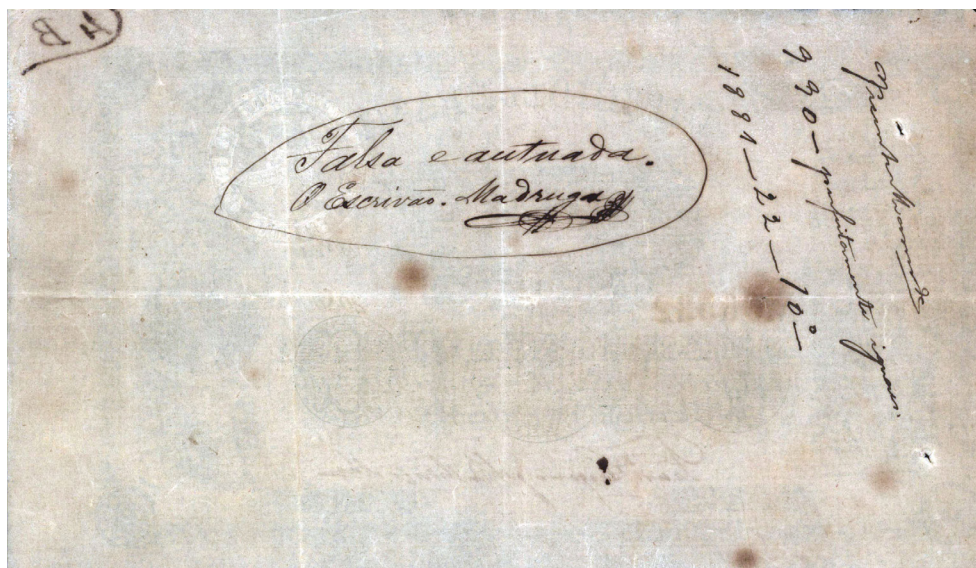 4 B
Falsa e autuada.
O Escrivão. Madruga
990 — perfeitamente iguaes.
1881 — 22 — 10º —